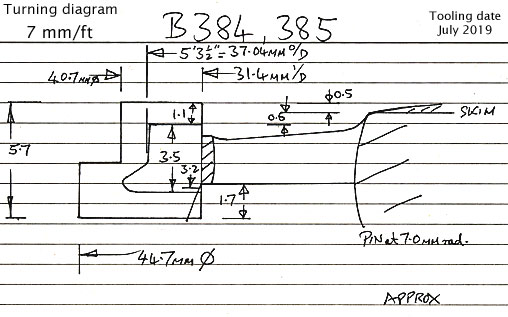 Turning diagram
7 mm/ft
B384, 385
Tooling date
July 2019
5'3½"=37.04mm O/D
40.7mmø
31.4mm I/D
0.5
1.1
0.6
SKIM
5.7
3.5
3.2
1.7
PIN at 7.0mm rad.
44.7mm Ø
APPROX